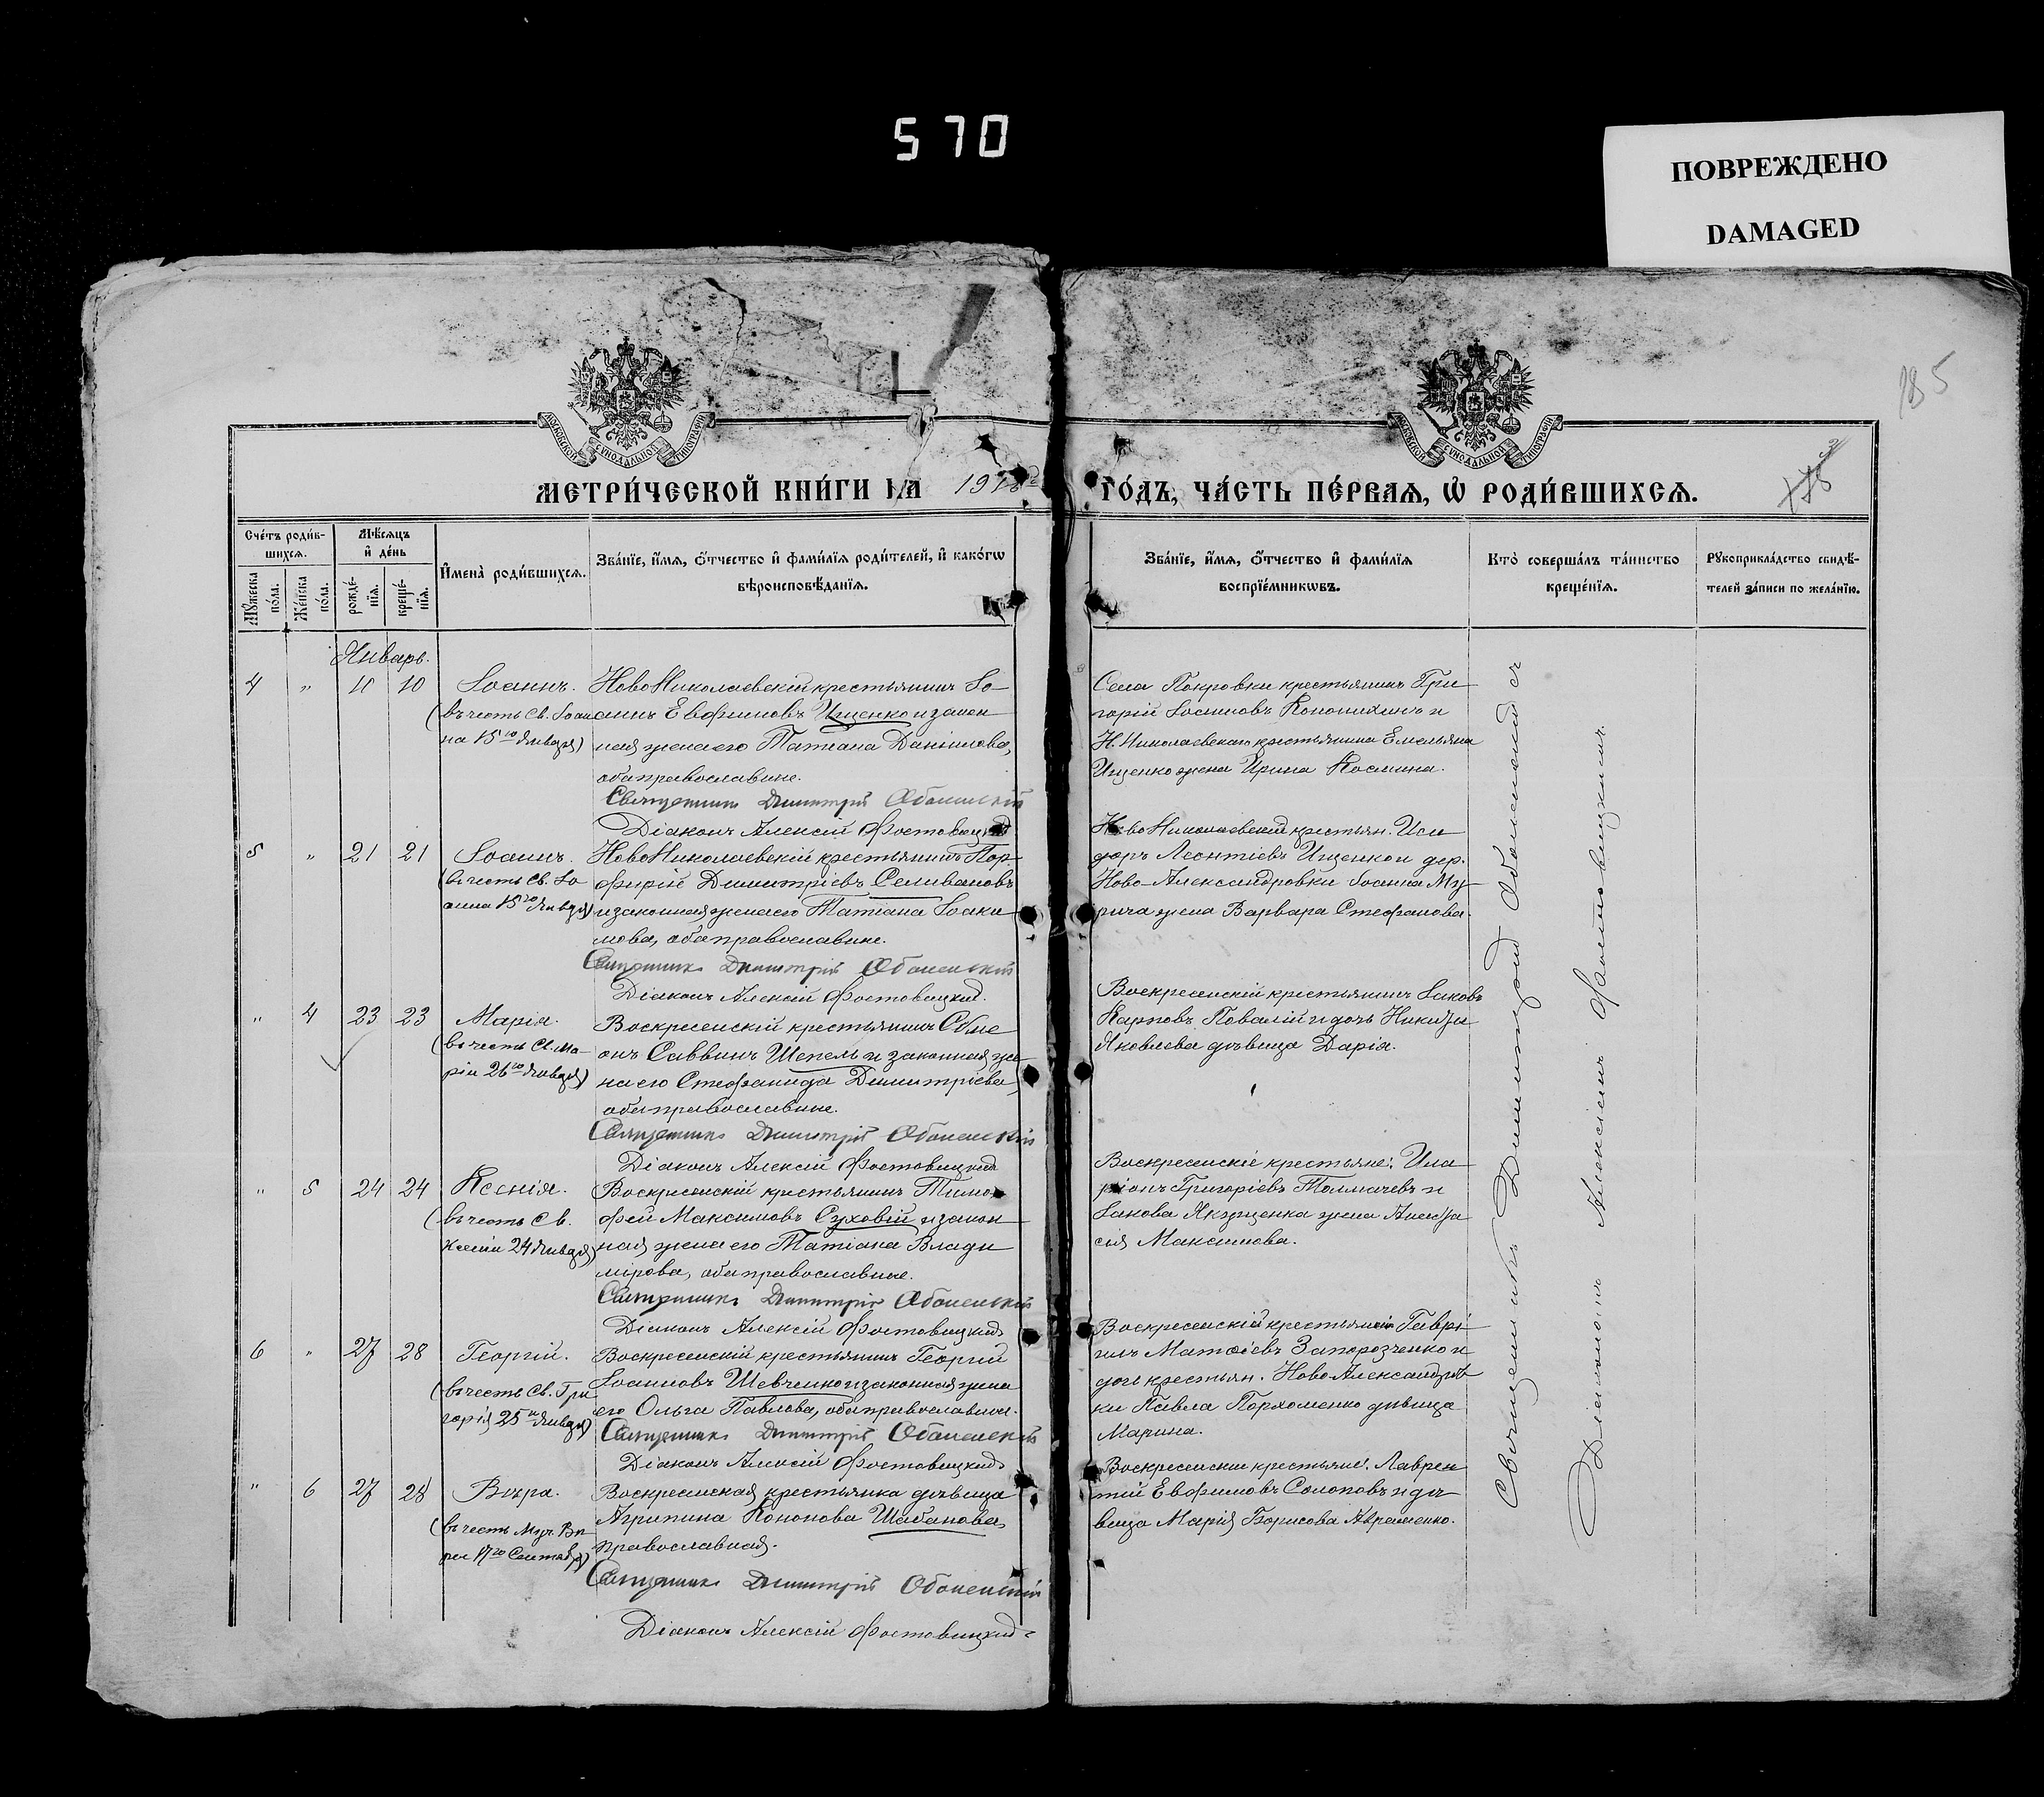 570
ПОВРЕЖДЕНО
DAMAGED
185
МОСКОВСКОЙ СУНОДАЛЬНОЙ ТИПОГРАФІИ
МОСКОВСКОЙ СУНОДАЛЬНОЙ ТИПОГРАФІИ
МЕТРИ́ЧЕСКОЙ КНИ́ГИ НА 1918й
ГО́ДЪ, ЧА́СТЬ ПЕ́РВАѦ, Ѡ РОДИ́ВШИХСѦ.
Сче́тъ роди́в-
шихсѧ.
Мѹ́жеска
по́ла.
Же́нска
по́ла.
Мѣ́сѧцъ
и҆ де́нь
рожде́-
нїѧ.
креще́-
нїѧ.
И҆мена̀ роди́вшихсѧ.
Зва́нїе, и҆́мѧ, о҆́тчество и҆ фами́лїѧ роди́телей, и҆ како́гѡ
вѣроисповѣ́данїѧ.
Зва́нїе, и҆́мѧ, о҆́тчество и҆ фами́лїѧ
воспрїе́мникѡвъ.
Кто̀ соверша́лъ та́инство
креще́нїѧ.
Рѹкоприкла́дство свидѣ́-
телей за́писи по жела́нїю.
Январь.
4 " 10 10
Іоаннъ.
(въ честь Св. Іоан
на 15го Января)
НовоНиколаевскій крестьянинъ Іо-
аннъ Евфимовъ Ищенко и закон
ная жена его Татіана Даніилова,
оба православные.
Священникъ Димитрій Оболенскій
Діаконъ Алексій Фостовицкій
Села Покровки крестьянинъ Гри
горій Іоанновъ Кононихинъ и
Н. Николаевскаго крестьянина Емельяна
Ищенко жена Ирина Космина.
5 " 21 21
Іоаннъ.
(въ честь Св. Іо
анна 15го Января)
НовоНиколаевскій крестьянинъ Пор-
фирій Димитріевъ Селивановъ
и законная жена его Татіана Іоаки
мова, оба православные.
Священникъ Димитрій Оболенскій
Діаконъ Алексій Фостовицкій.
НовоНиколаевскій крестьян. Иси
доръ Леонтіевъ Ищенко и дер.
Ново-Александровки Іоанна Му
рича жена Варвара Стефанова.
" 4 23 23
Марія.
(въ честь Св. Ма-
ріи 26го Января)
Воскресенскій крестьянинъ Сѵме
онъ Саввинъ Шепель и законная же
на его Стефанида Димитріева,
оба православные.
Священникъ Димитрій Оболенскій
Діаконъ Алексій Фостовицкій
Воскресенскій крестьянинъ Іаковъ
Карповъ Повалій и дочь Никиты
Яковлева дѣвица Дарія.
" 5 24 24
Ксенія.
(въ честь Св.
Ксеніи 24 Января)
Воскресенскій крестьянинъ Тимо-
фей Максимовъ Суховій и закон
ная жена его Татіана Влади
мірова, оба православные.
Священникъ Димитрій Оболенскій
Діаконъ Алексій Фостовицкій
Воскресенскіе крестьяне: Ила
ріонъ Григоріевъ Толмачевъ и
Іакова Якущенка жена Анаста
сія Максимова.
6 " 27 28
Георгій.
(въ честь Св. Гри
горія 25го Января)
Воскресенскій крестьянинъ Георгій
Іоанновъ Шевченко и законная жена
его Ольга Павлова, оба православные.
Священникъ Димитрій Оболенскій
Діаконъ Алексій Фостовицкій
Воскресенскій крестьянинъ Гаврі-
илъ Матѳіевъ Запорозченко и
дочь крестьян. НовоАлександров
ки Павла Порхоменко дѣвица
Марина.
" 6 27 28
Вѣра.
(въ честь Муч. Вѣ
ры 17го Сентября)
Воскресенская крестьянка дѣвица
Агрипина Кононова Шабанова,
православная.
Священникъ Димитрій Оболенскій
Діаконъ Алексій Фостовицкій
Воскресенскіе крестьяне: Лаврен
тій Евфимовъ Солоповъ и дѣ
вица Марія Борисова Авраменко.
Священникъ Димитрій Оболенскій съ
Діакономъ Алексіемъ Фостовицкимъ